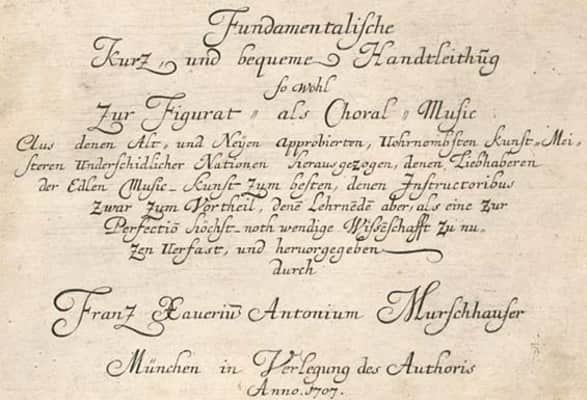 Fundamentalische
Kurz„ und bequeme Handtleithūg
so wohl
Zur Figurat„ als Choral„ Music
Aus denen Alt, und Neÿen approbierten, Vohrnembsten Kunst„Mei„
steren Underschidlicher Nationen Herausgezogen, denen Liebhaberen
der Edlen Music„Kunst zum besten, denen Instructoribus
zwar zum Vortheil, denē Lehrnēdē aber, als eine zur
Perfectiō höchst„noth wendige Wissēschafft zu nu„
zen Verfast, und hervorgegeben
durch
Franz Xaveriū Antonium Murschhauser
München in Verlegung des Authoris
Anno. 1707.